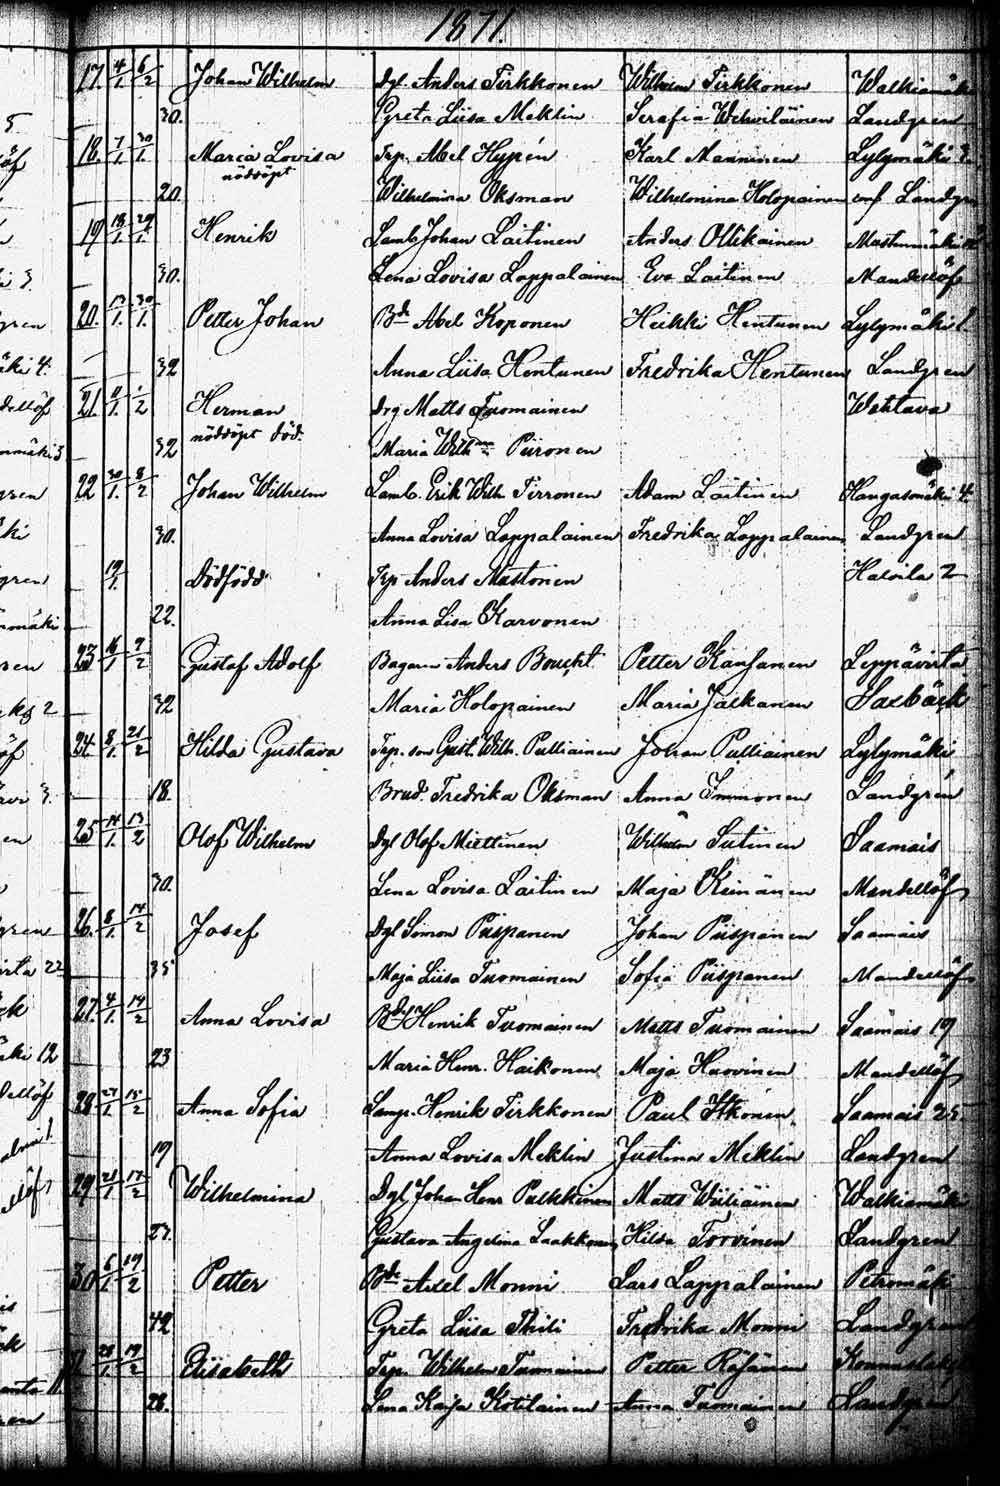 1871.
17. 4/1 6/2 Johan Wilhelm Dgl. Anders Tirkkonen Wilhelm Tirkkonen Walkiamäki
30. Greta Liisa Meklin Serafia Wehviläinen Landgren
18. 7/1 30/1 Maria Lovisa Trp. Abel Hypén Karl Manninen Lylymäki
nöddöpt
20. Wilhelmina Oksman Wilhelmina Holopainen Landgren
19 18/1 29/1 Henrik Lamb. Johan Laitinen Anders Ollikainen Mustinmäki
30. Lena Lovisa Lappalainen Eva Laitinen Mandellöf
20. 13/1 30/1 Petter Johan Bde Abel Koponen Heikki Hentunen Lylymäki 1.
32 Anna Liisa Hentunen Fredrika Hentunen Landgren
21 1/2 Herman Drg Matts Tuomainen Wehtava
nöddöpt död.
32 Maria Wilhna Piironen
22 30/1 8/2 Johan Wilhelm Lamb. Erik Wilh. Tirronen Adam Laitinen Kangasmäki 4.
30. Anna Lovisa Lappalainen Fredrika Lappalainen Landgren
19/1 Dödfödd Trp Anders Mustonen Halvila 2
22. Anna Lisa Karvonen
23 16/1 9/2 Gustaf Adolf Anders Boucht Petter Kansanen Leppävirta
32 Maria Holopainen Maria Jäskanen Saxbäck
24. 8/1 21/2 Hilda Gustava Trp. son Gust. Wilh. Pulliainen Johan Pulliainen Lylymäki
18. Brud. Fredrika Oksman Anna Immonen Landgrén
25 14/1 13/2 Olof Wilhelm Dgl Olof Miettinen Wilhelm Sutinen Saamais
30. Lena Lovisa Laitinen Maja Keinänen Mandellöf
26. 8/1 14/2 Josef Dgl Simon Piispanen Johan Piispanen Saamais
35 Maja Liisa Tuomainen Sofia Piispanen Mandellöf
27. 4/1 14/2 Anna Lovisa Henrik Tuomainen Matts Tuomainen Saamais 19
23 Maria Henr. Haikonen Maja Huovinen Mandellöf
28 27/1 15/2 Anna Sofia Henrik Tirkkonen Paul Itkonen Saamais 25
19 Anna Lovisa Meklin Justina Meklin Landgren
29 21/1 17/2 Wilhelmina Dgl Johan Henr Pulkkinen Matts Wiiliäinen Walkiamäki
27. Gustava Angelina Laakkonen Hilda Torvinen Landgren
30 6/1 19/2 Petter Bde Axel Monni Lars Lappalainen Petromäki
42 Greta Liisa Thili Fredrika Monni Landgren
28/1 19/2 Elisabeth Trp. Wilhelm Tuomainen Petter Räsänen
28. Lena Kaija Kotilainen Anna Tuomainen Landgren